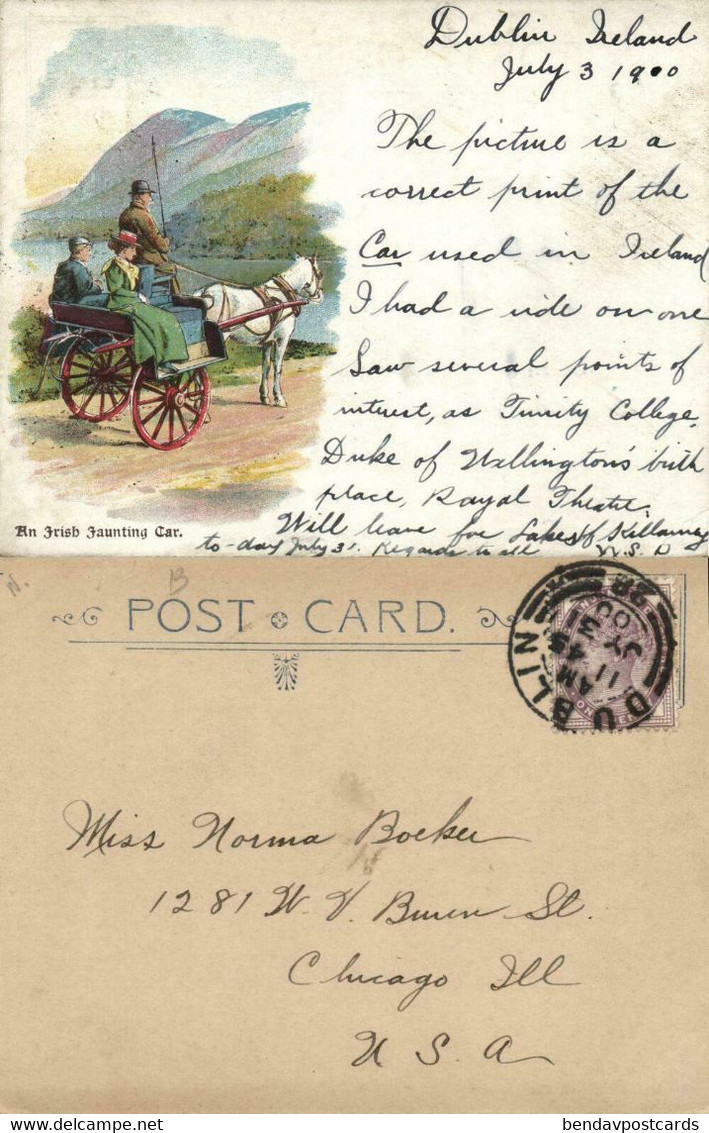 Dublin Ireland
July 3 1900
The picture is a
correct print of the
Car used in Ireland
I had a ride on one
Saw several points of
interest, as Trinity College,
Duke of Wellington's birth
place, Royal Theatre.
Will leave for Lakes of Killarney
to-day July 3. Regards to all
An Irish Jaunting Car.
N.
B
POST CARD.
DUBLIN
11 45 AM
JY 3
00
Miss Norma Boeker
1281 W. V. Buren St.
Chicago Ill
U. S. A
bendavpostcards